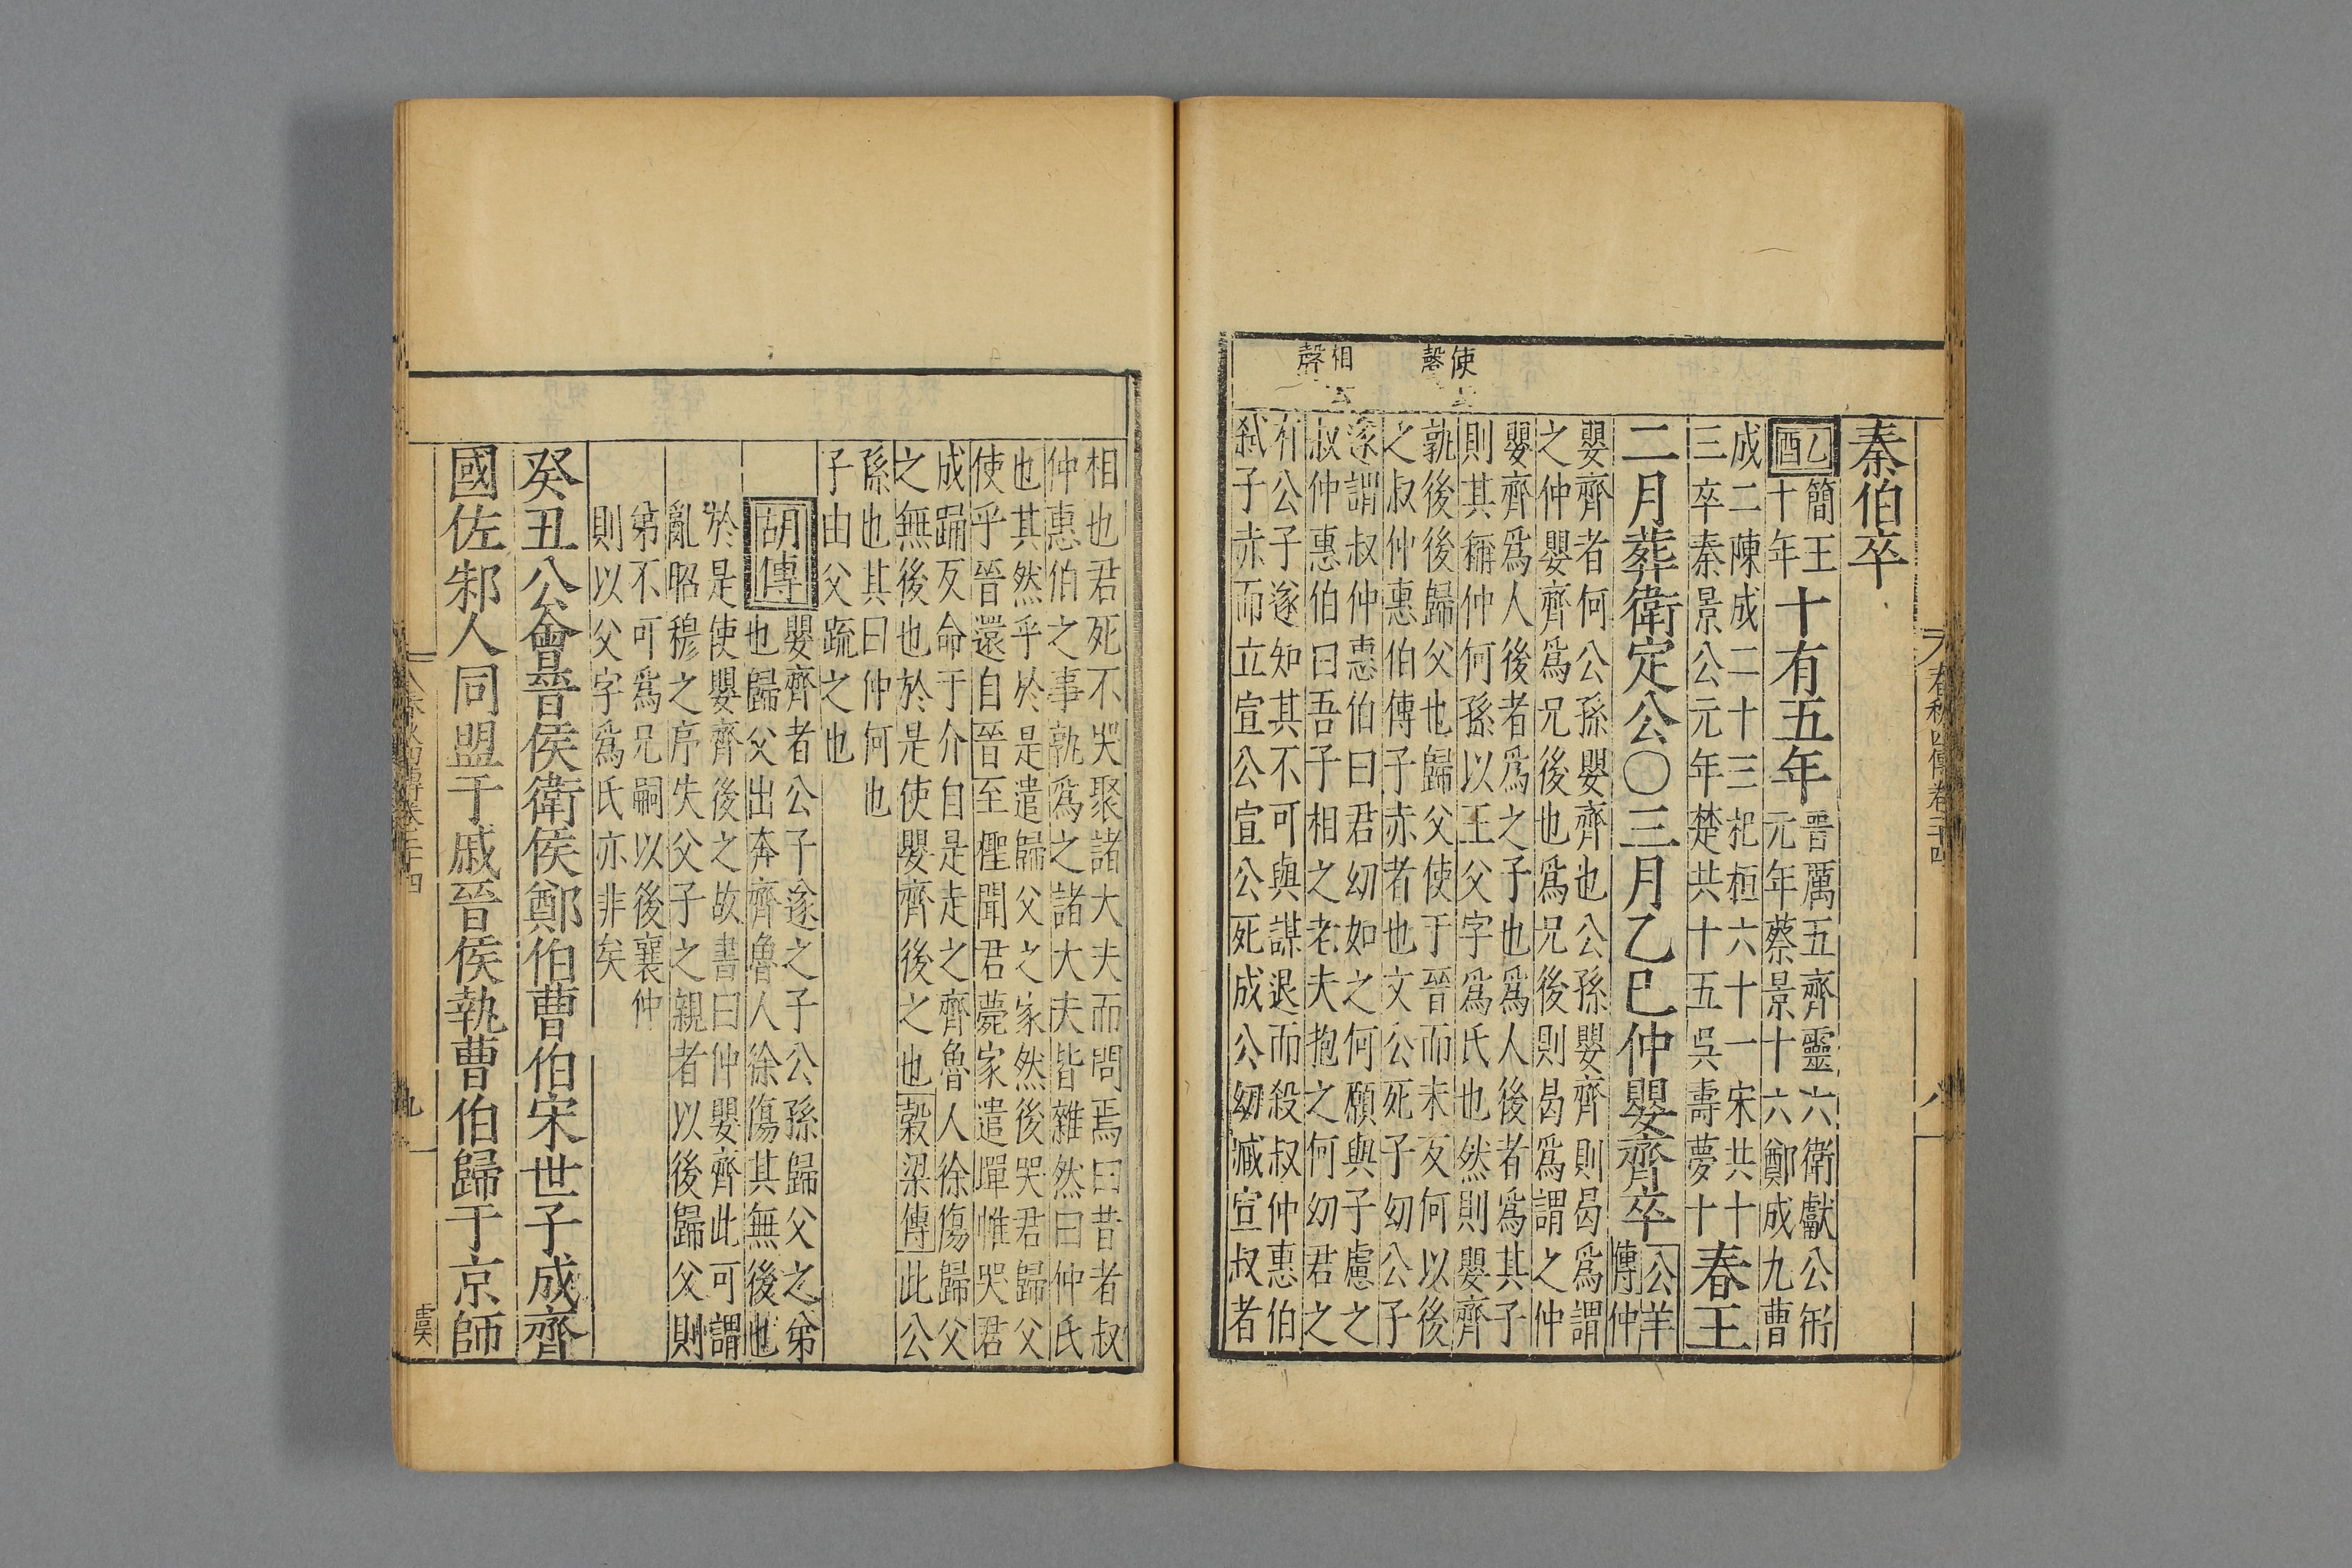 秦伯卒
乙酉
簡王
十年
十有五年
晉厲五齊靈六衛獻公衎
元年蔡景十六鄭成九曹
成二陳成二十三杞桓六十一宋共十
三卒秦景公元年楚共十五吳壽夢十
春王
二月葬衛定公〇三月乙巳仲嬰齊卒
公羊
傳仲
嬰齊者何公孫嬰齊也公孫嬰齊則曷爲謂
之仲嬰齊爲兄後也爲兄後則曷爲謂之仲
嬰齊爲人後者爲之子也爲人後者爲其子
則其稱仲何孫以王父字爲氏也然則嬰齊
孰後後歸父也歸父使于晉而未反何以後
之叔仲惠伯傳子赤者也文公死子幼公子
遂謂叔仲惠伯曰君幼如之何願與子慮之
叔仲惠伯曰吾子相之老夫抱之何幼君之
有公子遂知其不可與謀退而殺叔仲惠伯
弒子赤而立宣公宣公死成公幼臧宣叔者
使去
聲
相去
聲
春秋四傳卷二十四
八
相也君死不哭聚諸大夫而問焉曰昔者叔
仲惠伯之事孰爲之諸大夫皆雜然曰仲氏
也其然乎於是遣歸父之家然後哭君歸父
使乎晉還自晉至檉聞君薨家遣墠帷哭君
成踊反命于介自是走之齊魯人徐傷歸父
之無後也於是使嬰齊後之也穀梁傳此公
孫也其曰仲何也
子由父疏之也
胡傳
嬰齊者公子遂之子公孫歸父之弟
也歸父出奔齊魯人徐傷其無後也
於是使嬰齊後之故書曰仲嬰齊此可謂
亂昭穆之序失父子之親者以後歸父則
弟不可爲兄嗣以後襄仲
則以父字爲氏亦非矣
癸丑公會晉侯衛侯鄭伯曹伯宋世子成齊
國佐邾人同盟于戚晉侯執曹伯歸于京師
春秋四傳卷二十四
九